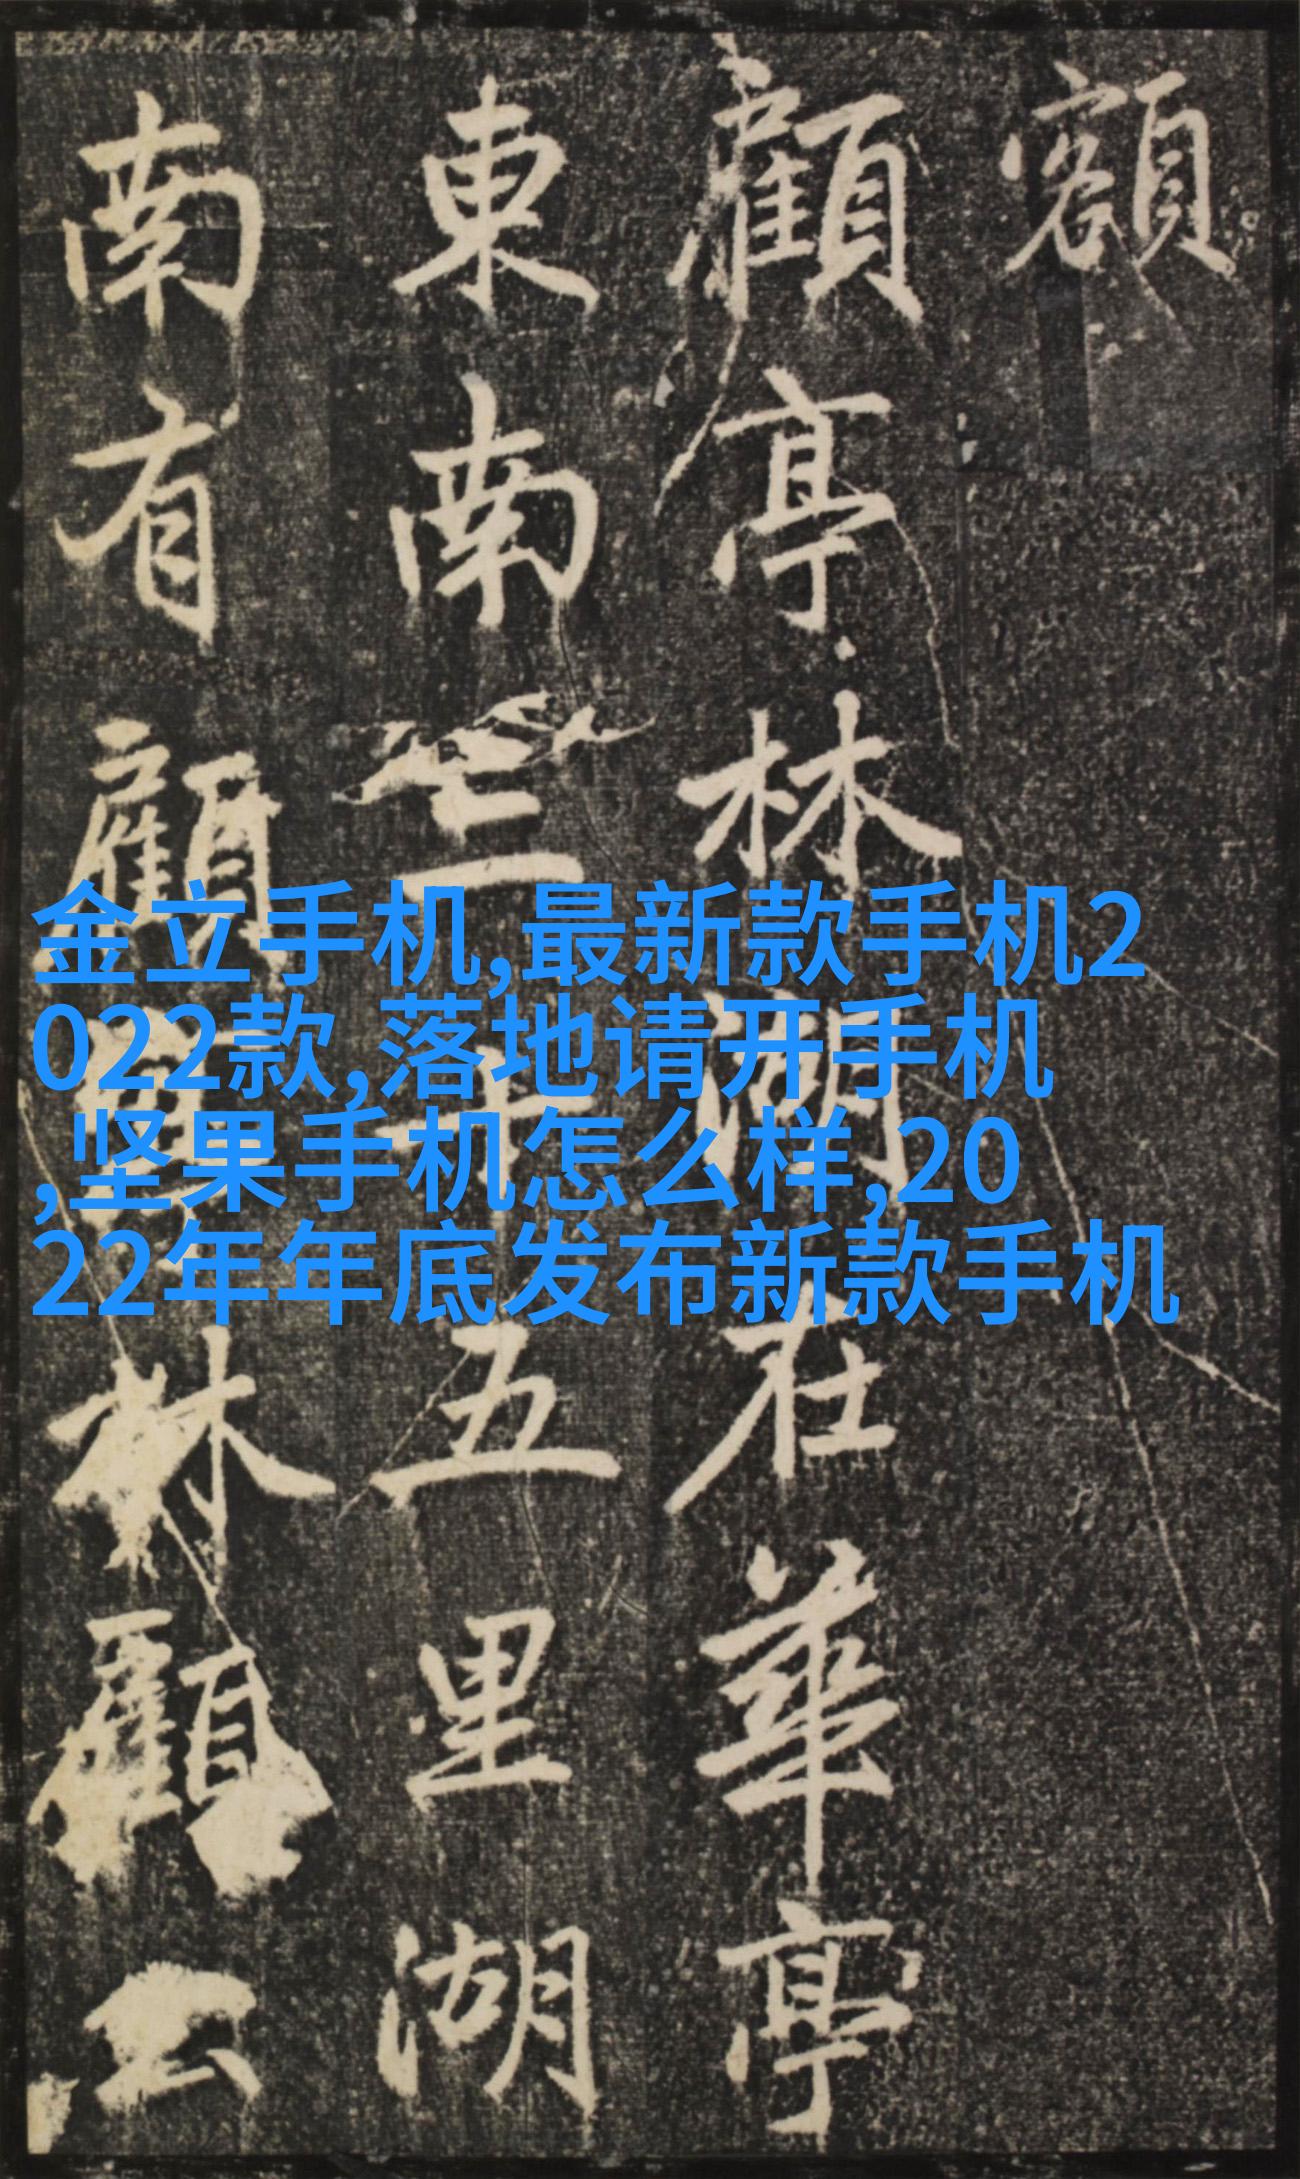 額
顧亭林湖在華亭
東南三十五里湖
南有顧林顧公
金立手机,最新款手机2
022款,落地请开手机
,坚果手机怎么样,20
22年年底发布新款手机